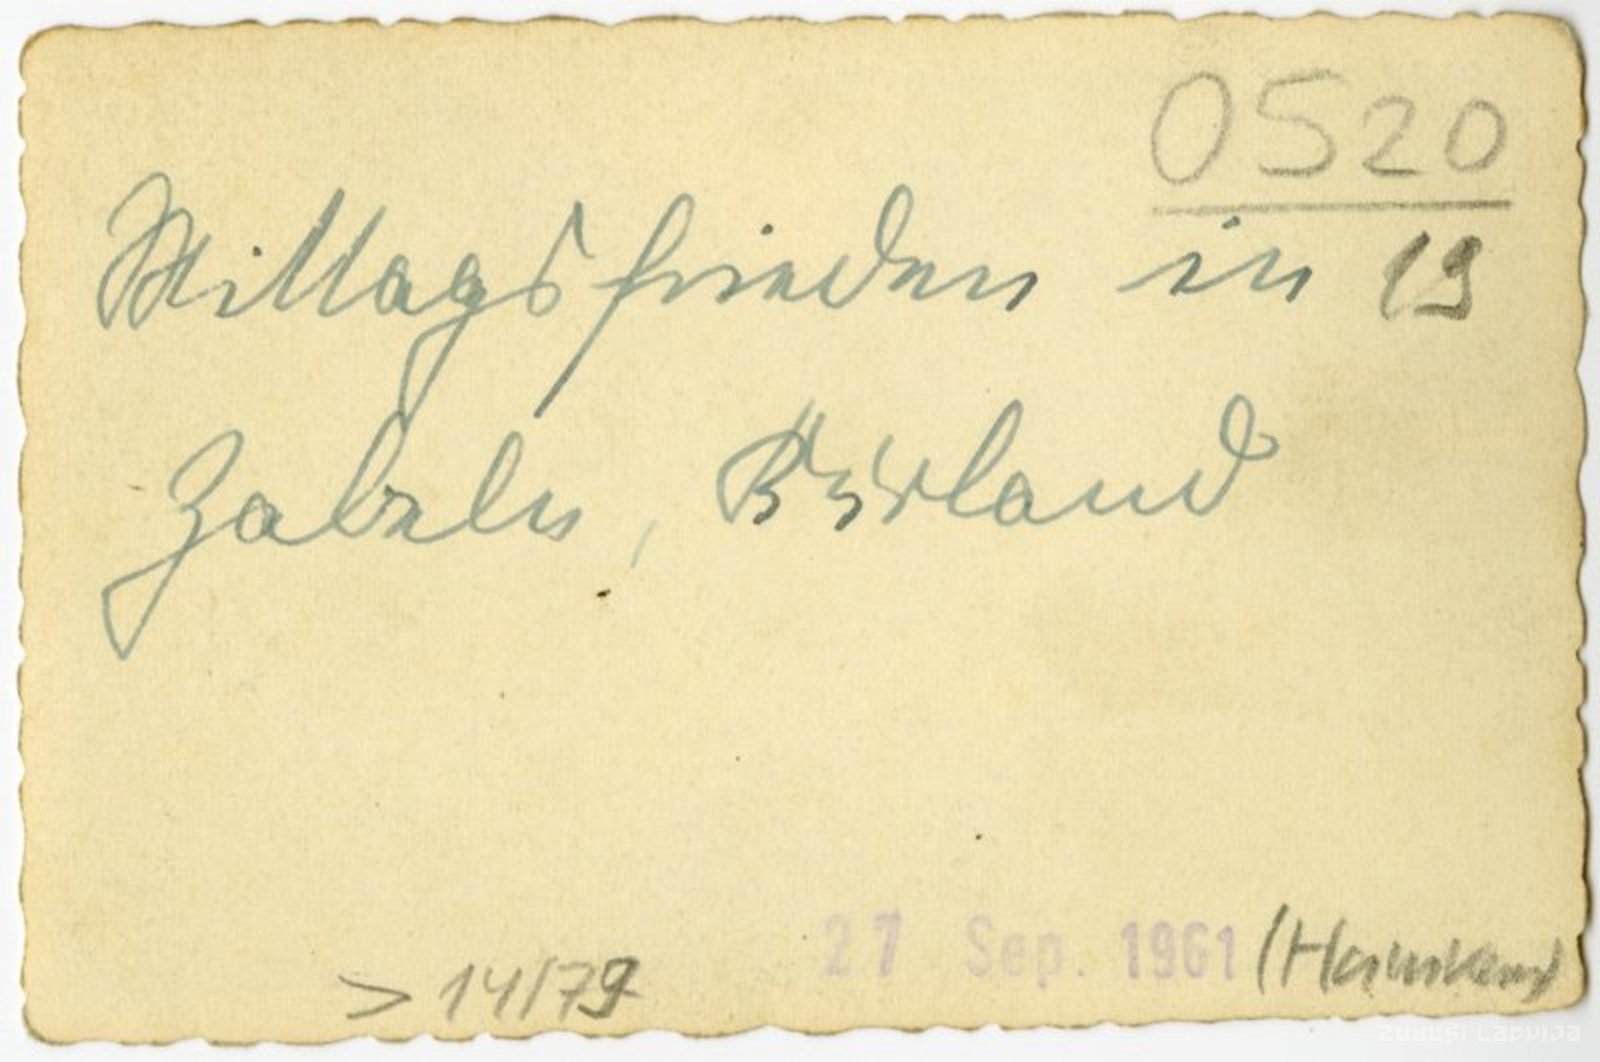 0520
Mittagsfrieden in 19
Zabeln, Kurland
27 Sep. 1961
> 14/79
zudusi Latvija